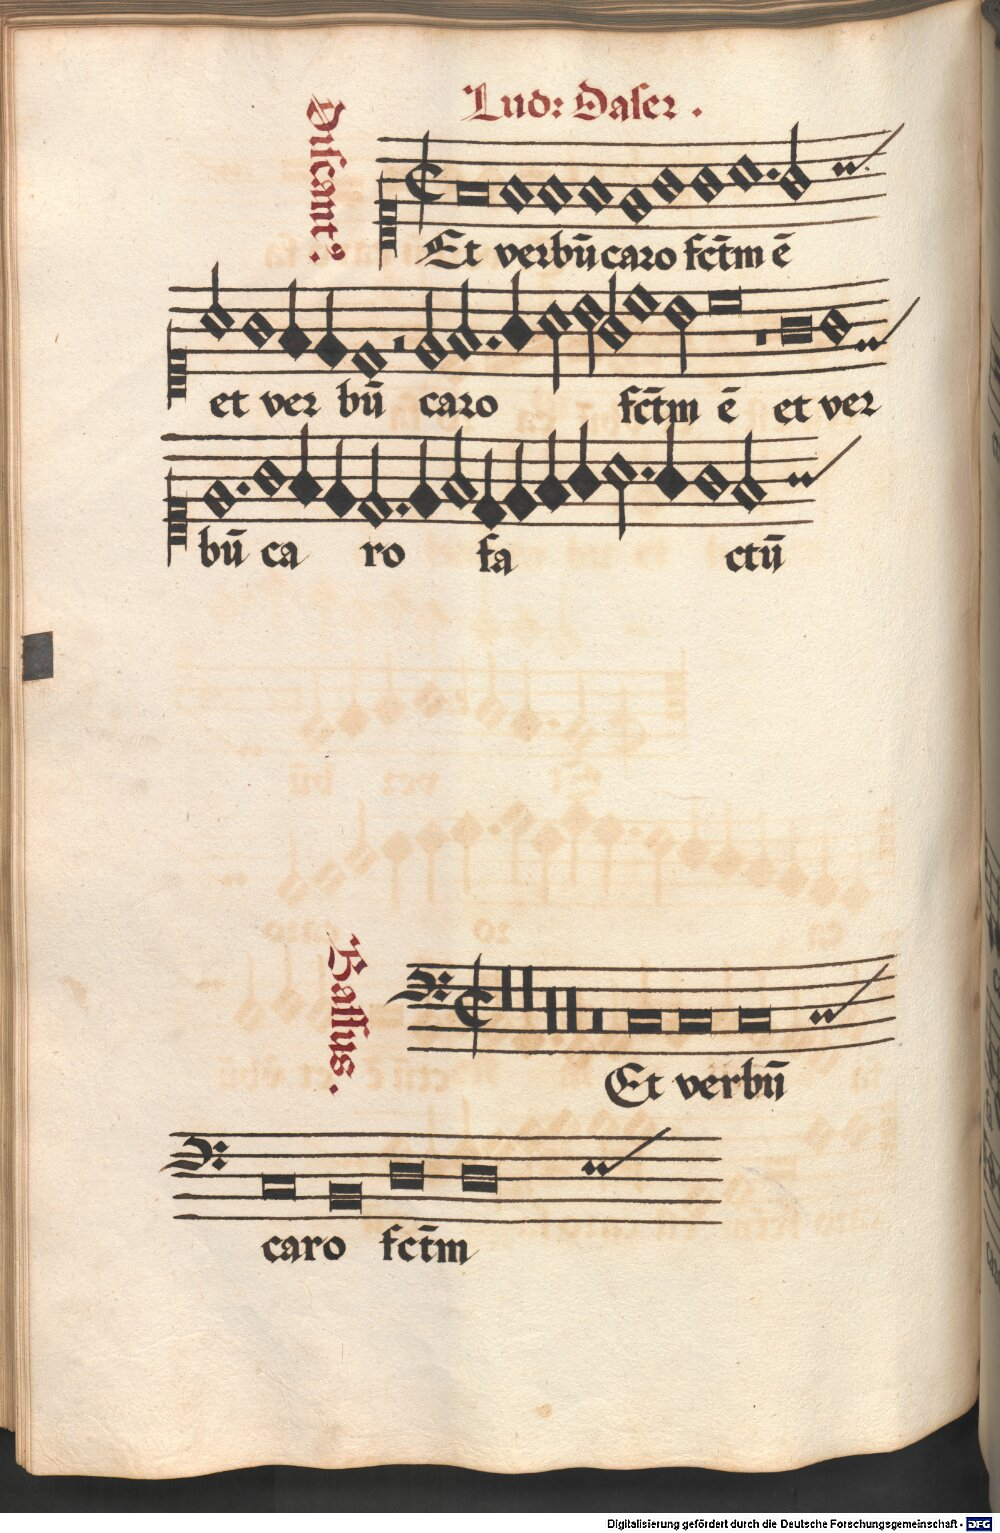 Lud: Daser.
Discant9
Et verbū caro fct̄m ē
et ver bū caro fct̄m ē et ver
bū ca ro fa ctū
Bassus.
Et verbū
caro fct̄m
Digitalisierung gefördert durch die Deutsche Forschungsgemeinschaft - DFG